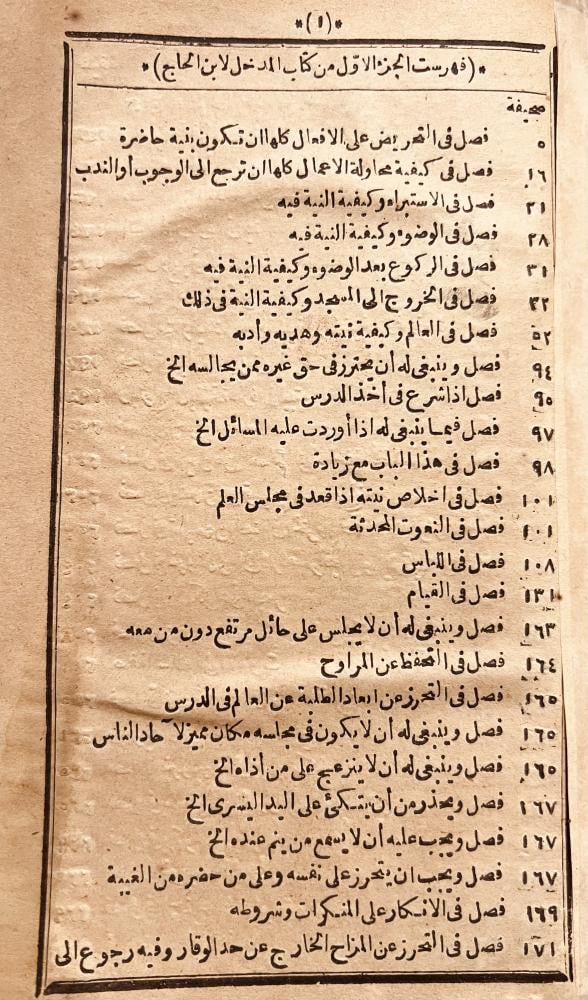 *(١)*
*(فهرست الجزء الاوّل من كتاب المدخل لابن الحاج)*
صحيفة
٥ فصل فى التحريض على الافعال كلها ان تكون بنية حاضرة
١٦ فصل فى كيفية محاولة الاعمال كلها ان ترجع الى الوجوب أو الندب
٢١ فصل فى الاستبراء وكيفية النية فيه
٢٨ فصل فى الوضوء وكيفية النية فيه
٣١ فصل فى الركوع بعد الوضوء وكيفية النية فيه
٣٢ فصل فى الخروج الى المسجد وكيفية النية فى ذلك
٥٢ فصل فى العالم وكيفية نيته وهديه وأدبه
٩٤ فصل وينبغى له أن يحترز فى حق غيره ممن يجالسه الخ
٩٥ فصل اذا شرع فى أخذ الدرس
٩٧ فصل فيما ينبغى له اذا أوردت عليه المسائل الخ
٩٨ فصل فى هذا الباب مع زيادة
١٠١ فصل فى اخلاص نيته اذا قعد فى مجلس العلم
١٠١ فصل فى النعوت المحدثة
١٠٨ فصل فى اللباس
١٣١ فصل فى القيام
١٦٣ فصل وينبغى له أن لا يجلس على حائل مرتفع دون من معه
١٦٤ فصل فى التحفظ عن المراوح
١٦٥ فصل فى التحرز عن ابعاد الطلبة عن العالم فى الدرس
١٦٥ فصل وينبغى له أن لا يكون فى مجالسه مكان مميز لآحاد الناس
١٦٥ فصل وينبغى له أن لا ينزعج على من أذاه الخ
١٦٧ فصل ويحذر من أن يتكئ على اليد اليسرى الخ
١٦٧ فصل ويجب عليه أن لا يسمع من ينم عنده الخ
١٦٧ فصل ويجب ان يتحرز على نفسه وعلى من حضره من الغيبة
١٦٩ فصل فى الانكار على المنكرات وشروطه
١٧١ فصل فى التحرز عن المزاح الخارج عن حد الوقار وفيه رجوع الى